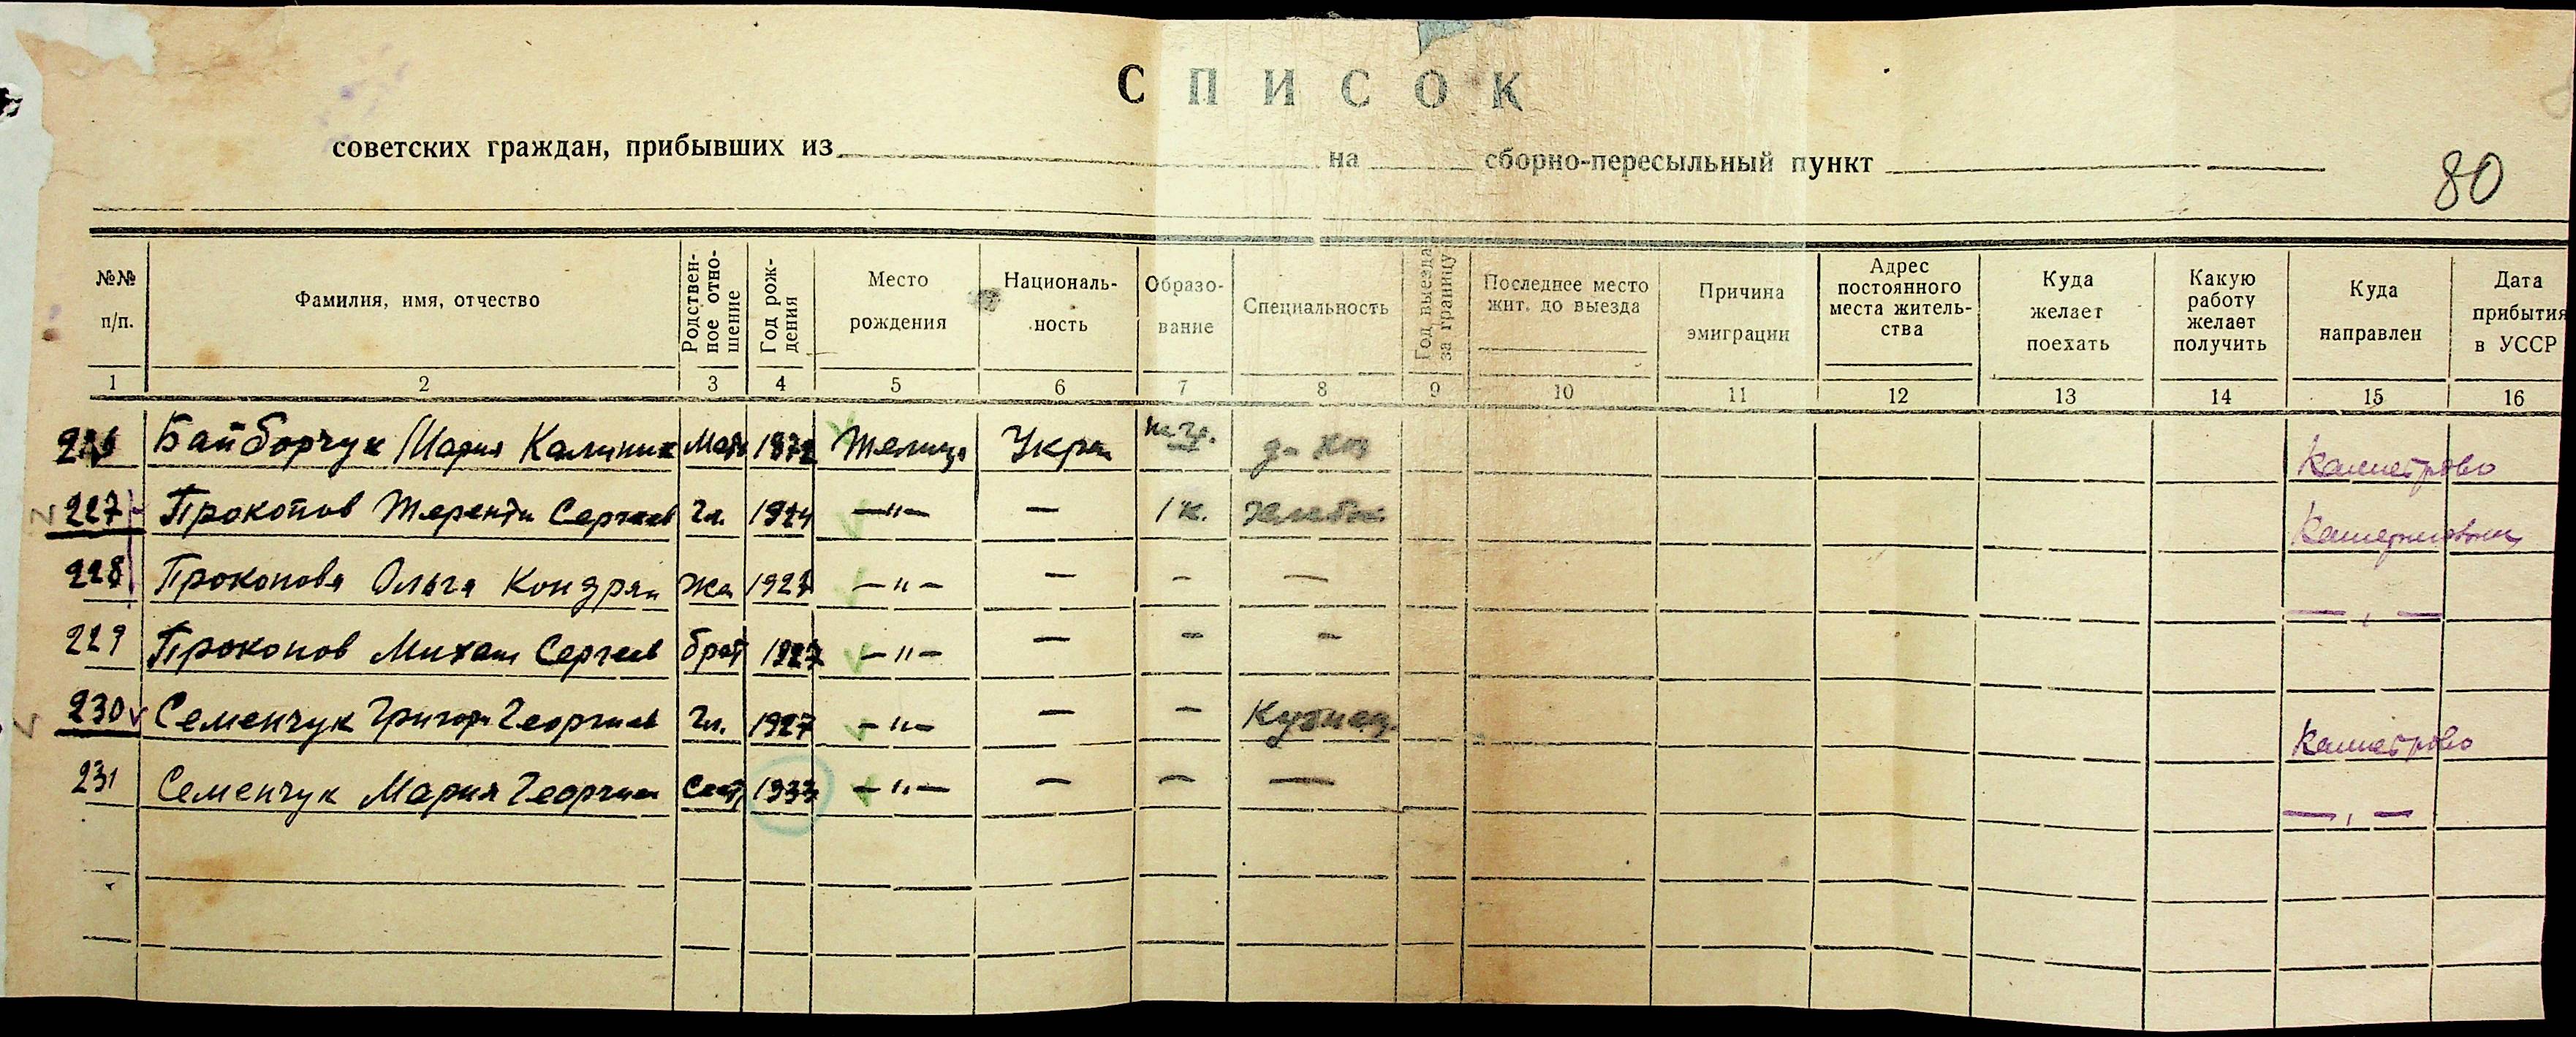 СПИСОК
советских граждан, прибывших из на сборно-пересыльный пункт
80
№№ п/п.
Фамилия, имя, отчество
Родствен-ное отно-шение
Год рож-дения
Место рождения
Националь-ность
Образо-вание
Специальность
Год выезда за границу
Последнее место жит. до выезда
Причина эмиграции
Адрес постоянного места житель-ства
Куда желает поехать
Какую работу желает получить
Куда направлен
Дата прибытия в УССР
1 2 3 4 5 6 7 8 9 10 11 12 13 14 15 16
226 Байборчук Мария Калиник Мать 1872 Укра
227 Прокопов Терентий Сергеев Гл. 1924 —"— — 1 к.
228 Прокопова Ольга Кондрат Же —"— — - —
229 Прокопов Михаил Сергеев брат 1927 —"— — - -
230 Семенчук Григор Георгиев Гл. 1927 -"- — - Кузнец
231 Семенчук Мария Георгиев Сест 1933 —"— — — — — , —